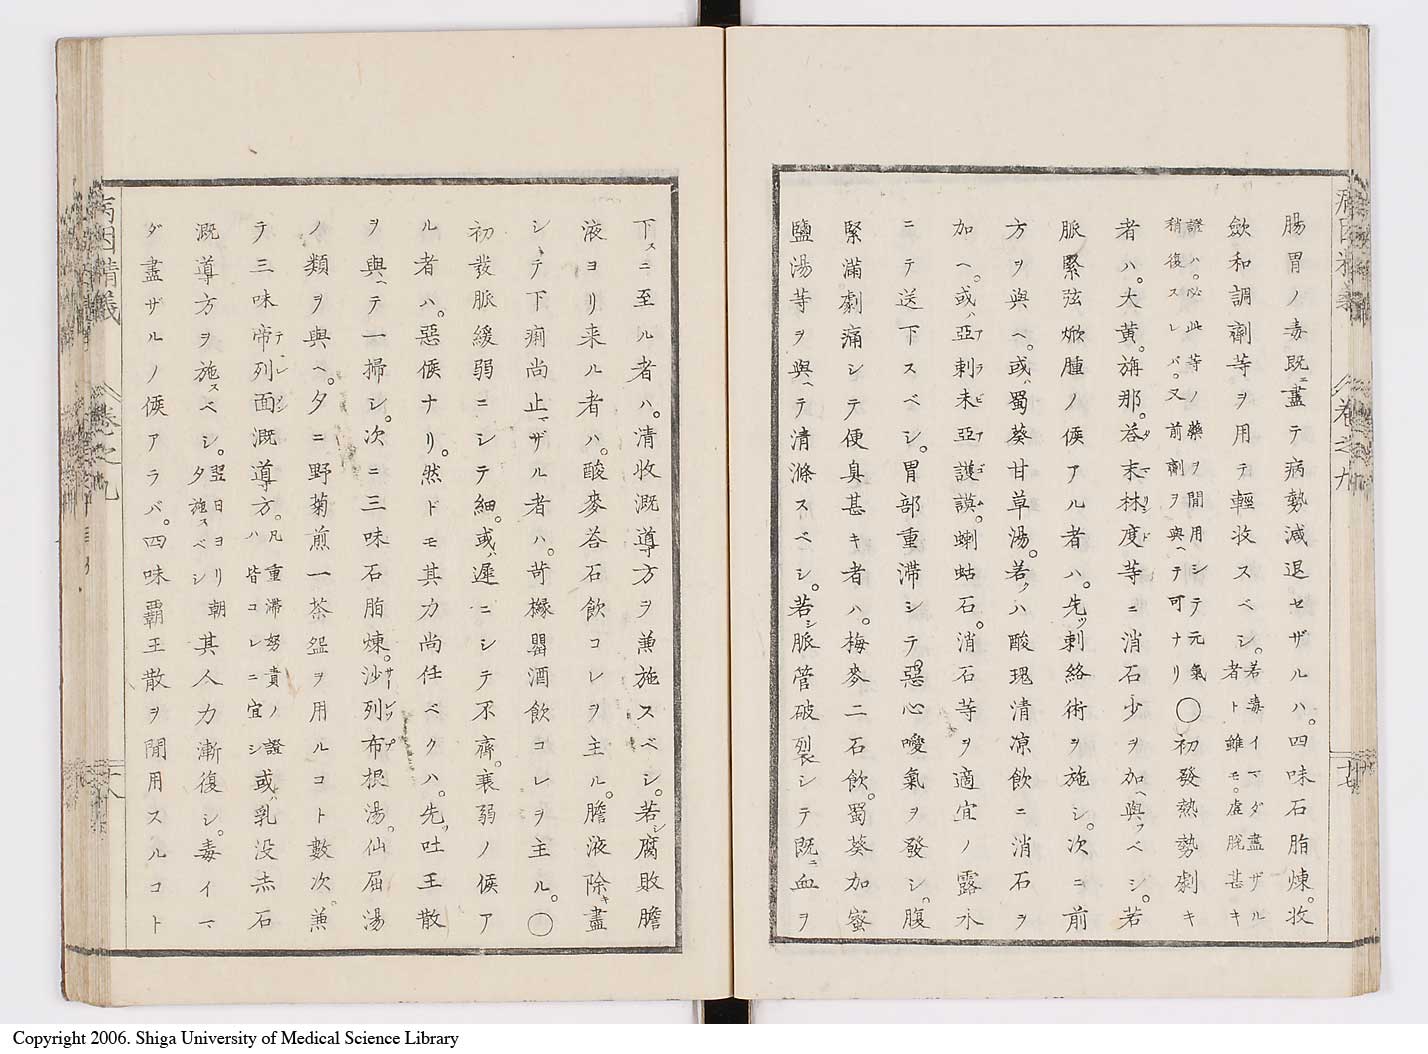 腸胃ノ毒既ニ盡テ病勢減退セザルハ。四味石脂煉。收
斂和調劑等ヲ用テ輕收スベシ。若毒イマダ盡ザル者ト雖モ。虚脱甚キ
證ハ。必此等ノ藥ヲ間用シテ元氣稍復スレバ。又前劑ヲ與ヘテ可ナリ〇初發熱勢劇キ
者ハ。大黄。旃那。荅末林度等ニ消石少ヲ加ヘ與フベシ。若
脈緊弦焮腫ノ候アル者ハ。先ッ刺絡術ヲ施シ。次ニ前
方ヲ與ヘ。或ハ蜀葵甘草湯。若クハ酸瑰清凉飲ニ消石ヲ
加ヘ。或ハ亞剌未亞護謨。蝲蛄石。消石等ヲ適宜ノ露水
ニテ送下スベシ。胃部重滞シテ惡心噯氣ヲ發シ。腹
緊滿劇痛シテ便臭甚キ者ハ。梅麥二石飲。蜀葵加蜜
鹽湯等ヲ與ヘテ清滌スベシ。若シ脈管破裂シテ既ニ血ヲ
下スニ至ル者ハ。清收漑導方ヲ兼施スベシ。若シ腐敗膽
液ヨリ来ル者ハ。酸麥荅石飲コレヲ主ル。膽液除キ盡
シテ下痢尚止マザル者ハ。苛櫞罌酒飲コレヲ主ル。〇
初發脈緩弱ニシテ細。或ハ遲ニシテ不齊。衰弱ノ候ア
ル者ハ。惡候ナリ。然ドモ其力尚任ベクハ。先ッ吐王散
ヲ與ヘテ一掃シ。次ニ三味石脂煉。沙列布根湯。仙屈湯
ノ類ヲ與ヘ。夕ニ野菊煎一茶盌ヲ用ルコト數次。兼
テ三味帝列面漑導方。凡重滞努責ノ證ハ皆コレニ宜シ或ハ乳没赤石
漑導方ヲ施スベシ。翌日ヨリ朝夕施スベシ其人力漸復シ。毒イマ
ダ盡ザルノ候アラバ。四味覇王散ヲ間用スルコト
病因精義
卷之九
十七
病因精義
卷之九
十八
Copyright 2006. Shiga University of Medical Science Library